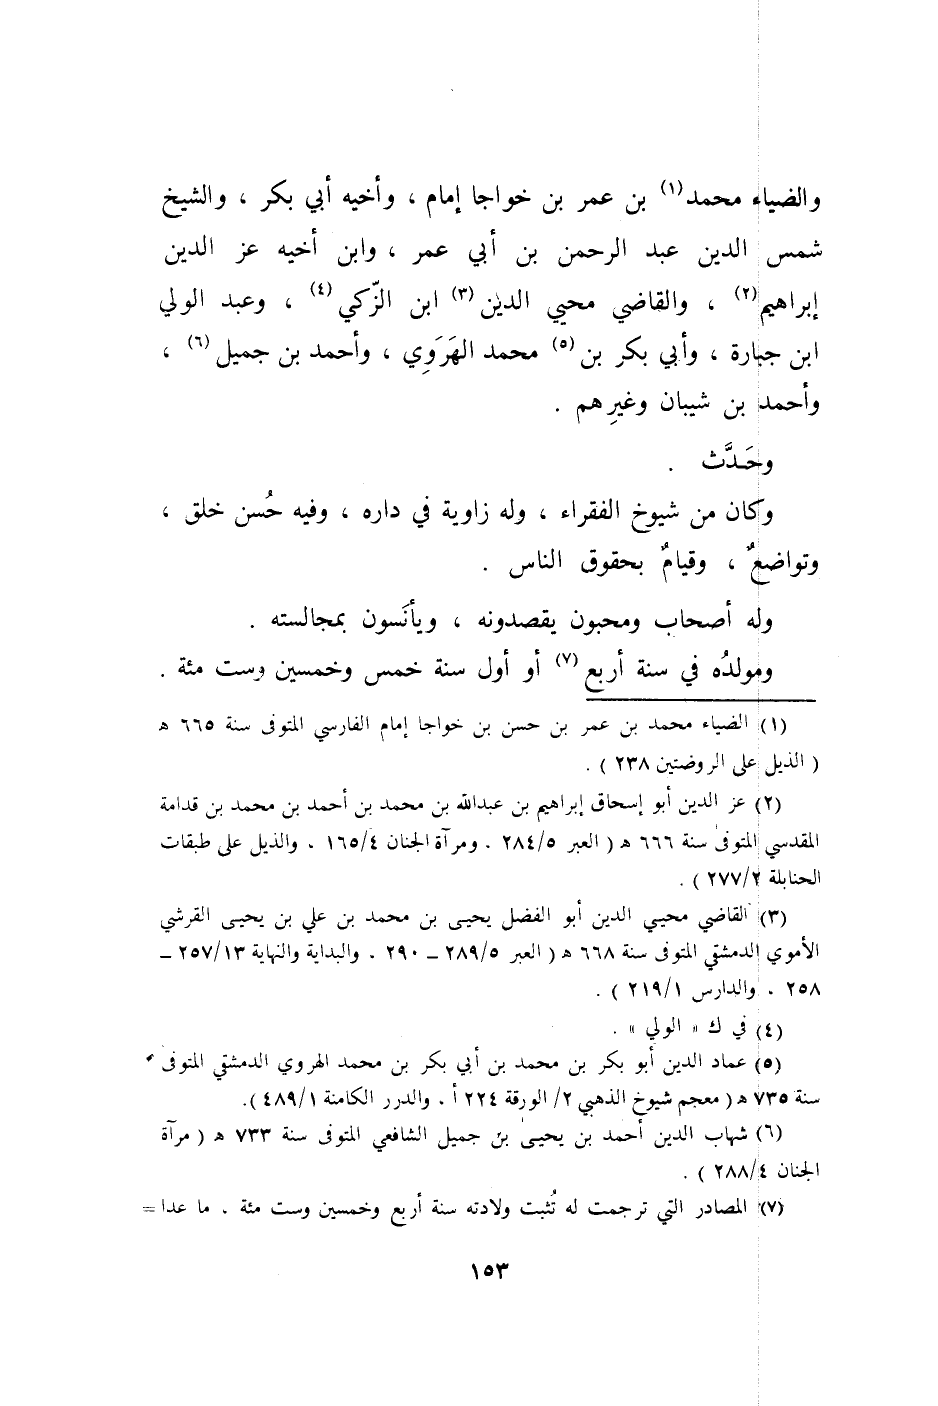 والضياء محمد(١) بن عمر بن خواجا إمام ، وأخيه أبي بكر ، والشيخ
شمس الدين عبد الرحمن بن أبي عمر ، وابن أخيه عز الدين
إبراهيم(٢) ، والقاضي محيي الدين(٣) ابن الزّكي(٤) ، وعبد الولي
ابن جبارة ، وأبي بكر بن(٥) محمد الهَرَوِي ، وأحمد بن جميل(٦) ،
وأحمد بن شيبان وغيرِهم .
وحَدَّث .
وكان من شيوخ الفقراء ، وله زاوية في داره ، وفيه حُسن خلق ،
وتواضعٌ ، وقيامٌ بحقوق الناس .
وله أصحاب ومحبون يقصدونه ، ويأنَسون بمجالسته .
ومولدُه في سنة أربع(٧) أو أول سنة خمس وخمسين وست مئة .
(١) الضياء محمد بن عمر بن حسن بن خواجا إمام الفارسي المتوفى سنة ٦٦٥ هـ
( الذيل على الروضتين ٢٣٨ ) .
(٢) عز الدين أبو إسحاق إبراهيم بن عبدالله بن محمد بن أحمد بن محمد بن قدامة
المقدسي المتوفى سنة ٦٦٦ هـ ( العبر ٢٨٤/٥ . ومرآة الجنان ١٦٥/٤ . والذيل على طبقات
الحنابلة ٢٧٧/٢ ) .
(٣) القاضي محيي الدين أبو الفضل يحيى بن محمد بن علي بن يحيى القرشي
الأموي الدمشقي المتوفى سنة ٦٦٨ هـ ( العبر ٢٨٩/٥ ــ ٢٩٠ . والبداية والنهاية ٢٥٧/١٣ ــ
٢٥٨ . والدارس ٢١٩/١ ) .
(٤) في ك « الولي » .
(٥) عماد الدين أبو بكر بن محمد بن أبي بكر بن محمد الهروي الدمشقي المتوفى
سنة ٧٣٥ هـ ( معجم شيوخ الذهبي ٢/ الورقة ٢٢٤ أ . والدرر الكامنة ٤٨٩/١ ).
(٦) شهاب الدين أحمد بن يحيى بن جميل الشافعي المتوفى سنة ٧٣٣ هـ ( مرآة
الجنان ٢٨٨/٤ ) .
(٧) المصادر التي ترجمت له تُثبت ولادته سنة أربع وخمسين وست مئة . ما عدا =
١٥٣